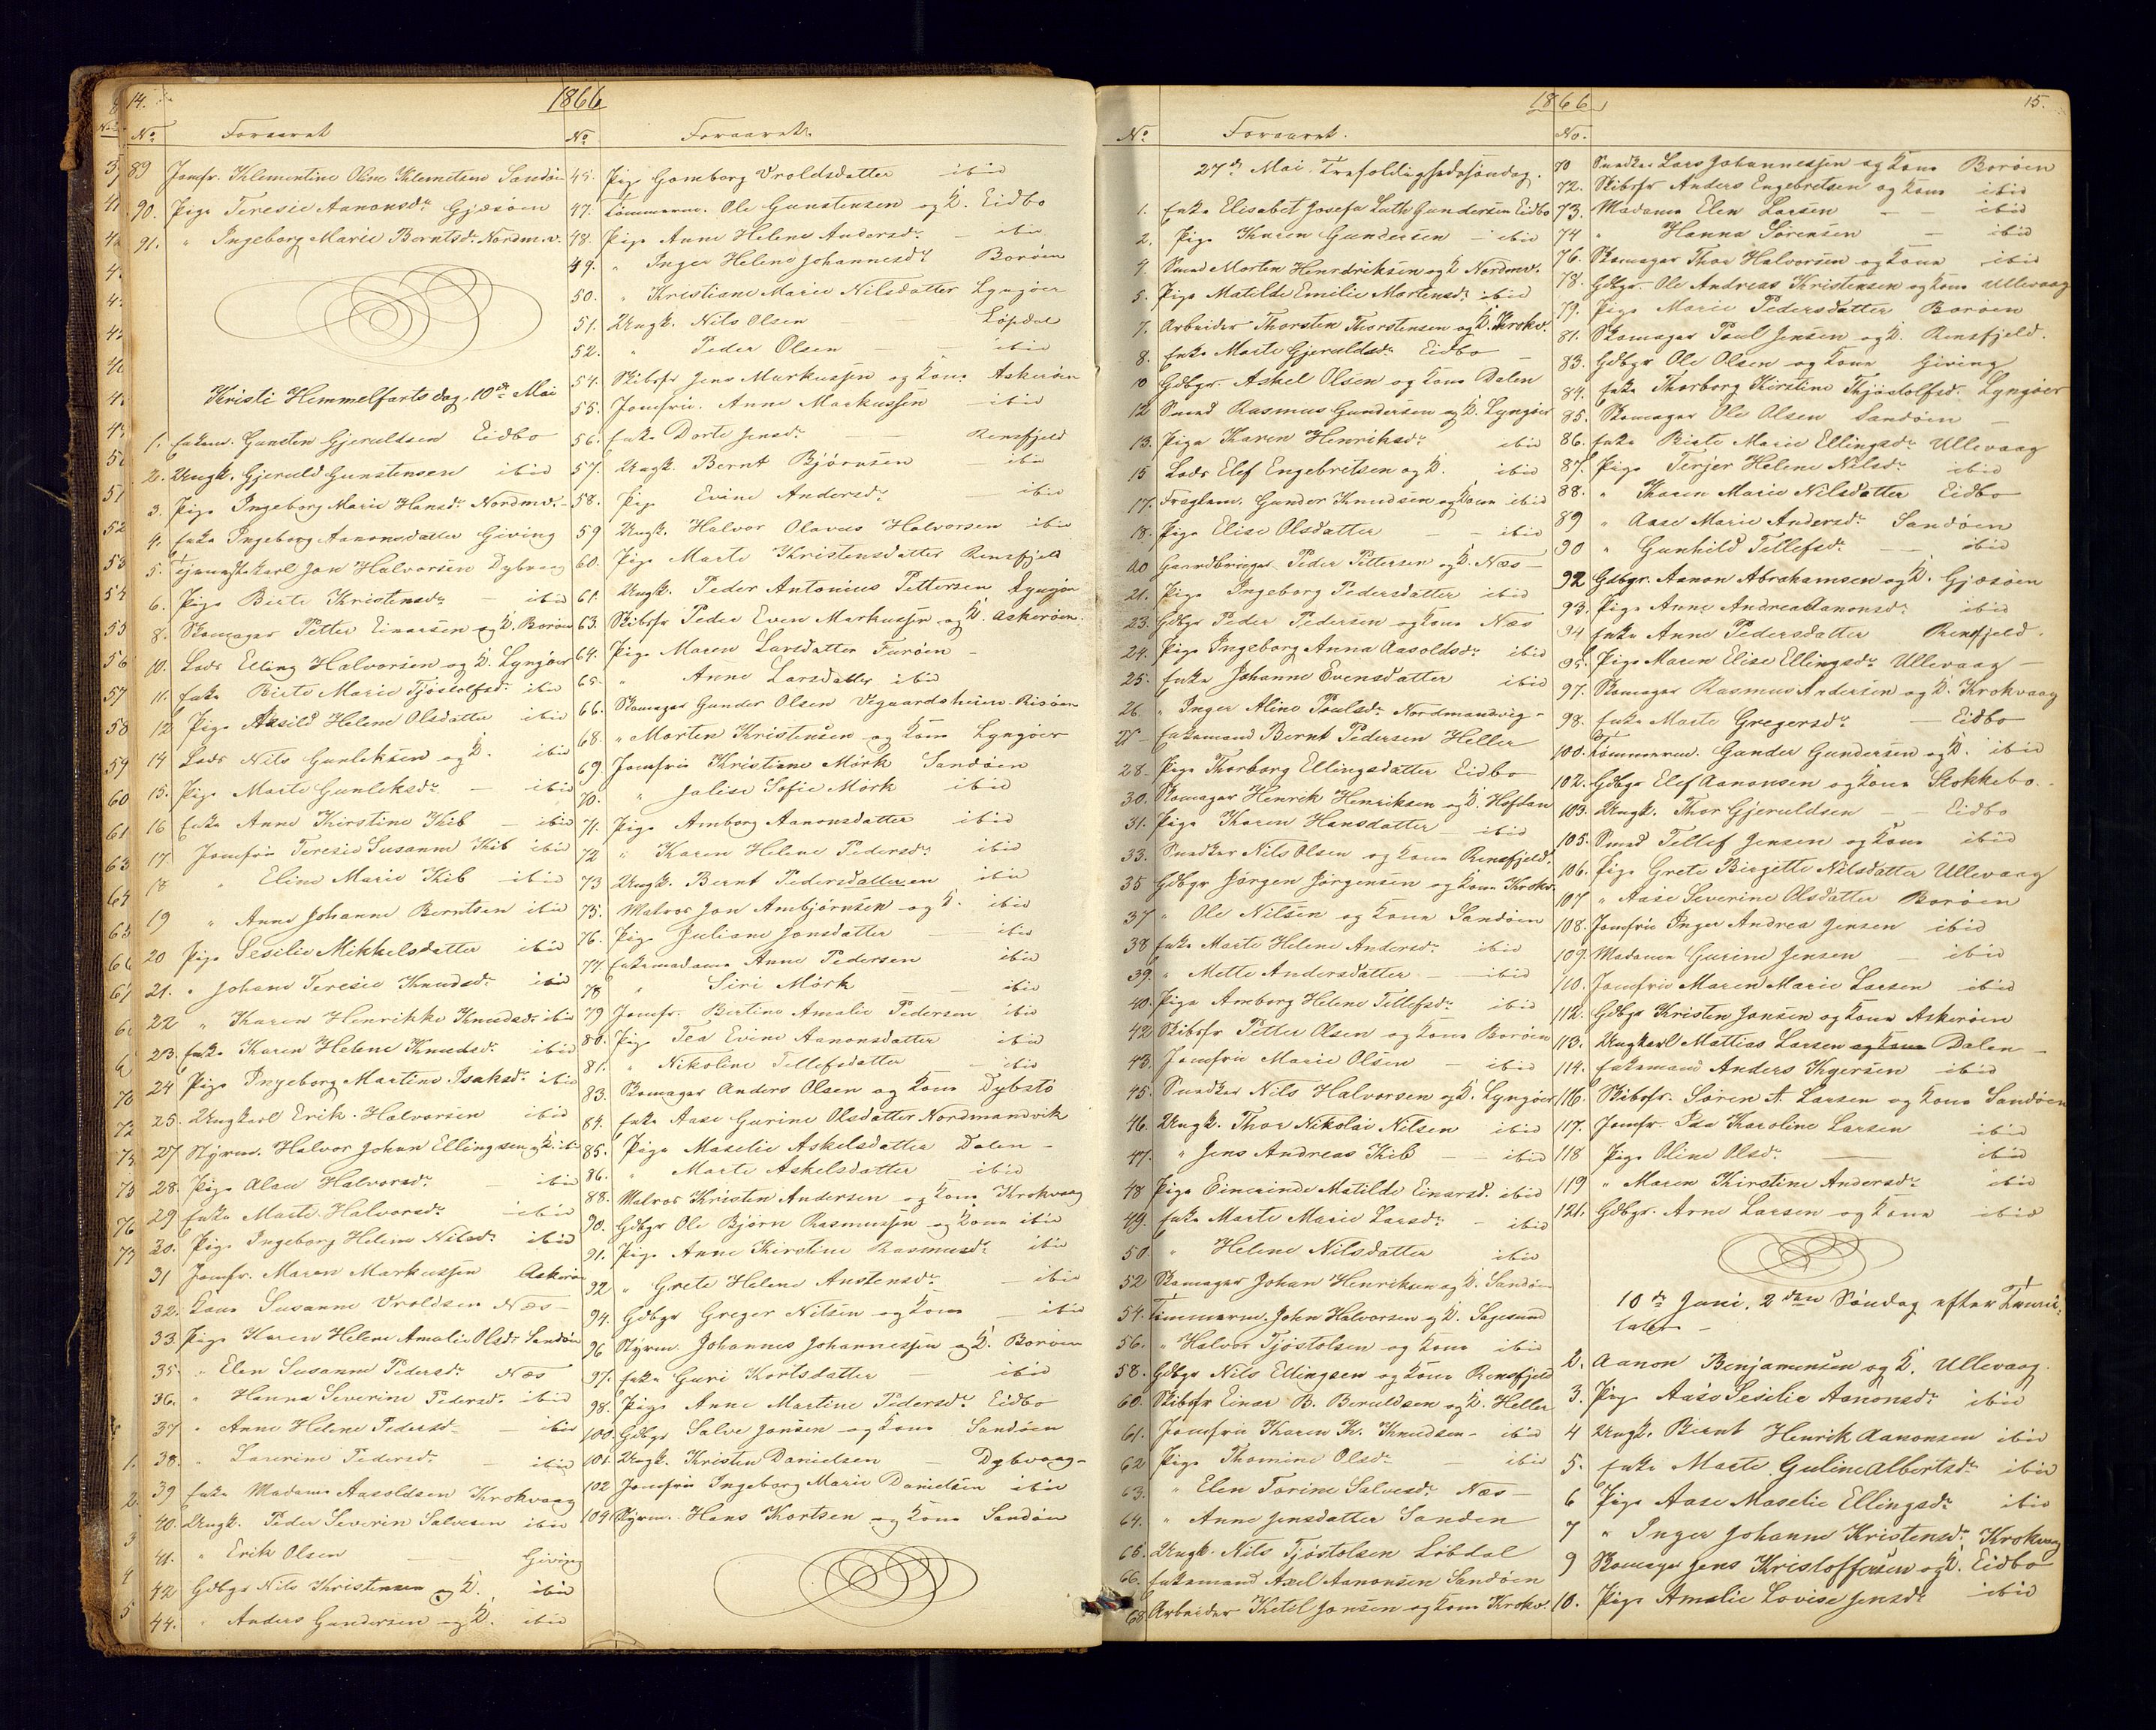 14.
1866
No Foraaret
89 Jomfr. Klementine Olene Klemetsen Sandøen
90. Pige Teresie Aanonsdr Gjæsøen
91. " Ingeborg Marie Berntsdr. Nordmv.
Kristi Himmelfartsdag, 10de Mai
1. Enkem. Gunsten Gjeruldsen Eidbo
2. Ungk. Gjeruld Gunstensen ibid
3. Pige Ingeborg Marie Hansdr. Nordmv.
4. Enke Ingeborg Aanonsdatter Giving
5. Tjenestekarl Jon Halvorsen Dybvaag
6. Pige Birte Kristensdr. ibid
8. Skomager Petter Einarsen og K. Borøen
10. Lods Elling Halvorsen og K. Lyngøer
11. Enke Birte Marie Tjøstolfsd. ibid
12 Pige Aasild Helene Olsdatter ibid
14 Lods Nils Gunleksen og K. ibid
15. Pige Marte Gunleksdr. ibid
16 Enke Anne Kirstine Kib ibid
17. Jomfru Teresie Susanne Kib ibid
18 " Eline Marie Kib ibid
19 " Anne Johanne Berntsen ibid
20 Pige Sesilie Mikkelsdatter ibid
21. " Johane Teresie Knudsdr. ibid
22 " Karen Henrikke Knudsdr. ibid
23. Enke Karen Helene Knudsdr. ibid
24 Pige Ingeborg Martine Isaksdr. ibid
25. Ungkarl Erik Halvorsen ibid
27 Styrm. Halvor Johan Ellingsen og K. ibid
28. Pige Alau Halvorsdr. ibid
29 Enke Marte Halvorsdr. ibid
30. Pige Ingeborg Helene Nilsdr. ibid
31 Jomfr. Maren Markussen Askerøen
32. Kone Susanne Vroldsen Næs
33. Pige Karen Helene Amalie Olsdr. Sandøen
35. " Elen Susanne Pedersdr. Næs
36. " Hanna Severine Pedersd. ibid
37 " Anne Helene Pedersd. ibid
38. " Laverine Pedersdr. ibid
39 Enke Madame Aasoldsen Krokvaag
40. Ungk. Peder Severin Salvesen ibid
41. " Erik Olsen Giving
42 Gdbgr Nils Kristensen og K. ibid
44. " Anders Gundersen og K. ibid
No Foraaret.
45. Pige Gomborg Vroldsdatter ibid
47. Tømmerm. Ole Gunstensen og K. Eidbo
48. Pige Anne Helene Andersdr. ibid
49. " Inger Helene Johannesdr Borøen
50. " Kristiane Marie Nilsdatter Lyngøer
51. Ungk. Nils Olsen Løvdal
52. " Peder Olsen ibid
54. Skibsfr Jens Markussen og Kone Askerøen
55. Jomfru. Anne Markussen ibid
56. Enke Dorte Jensdr. Rensfjeld
57. Ungk. Bernt Bjørnsen ibid
58. Pige Evine Andersdr. ibid
59 Ungk. Halvor Olaves Halvorsen ibid
60. Pige Marte Kristensdatter Rensfjeld
61. Ungk. Peder Antonius Pettersen Lyngøer
63. Skibsfr Peder Even Markussen og K. Askerøen.
64. Pige Maren Larsdatter Furøen
65. " Anne Larsdatter ibid
66. Skomager Gunder Olsen Vegaardsheien. Risøen
68. " Morten Kristensen og Kone Lyngøer
69. Jomfru Kristiane Mørk Sandøen
70. " Jalise Sofie Mørk ibid
71. Pige Amborg Aanonsdatter ibid
72 " Karen Helene Pedersdr. ibid
73 Ungk. Bernt Pedersdatteren ibid
75. Matros Jon Ambjørnsen og K. ibid
76. Pige Juliane Jonsdatter ibid
77. Enkemadame Anne Pedersen ibid
78 " Siri Mørk ibid
79 Jomfr. Bertine Amalie Pedersen ibid
80. Pige Tea Evine Aanonsdatter ibid
81. " Nikoline Tellefsdatter ibid
83. Skomager Anders Olsen og Kone Dybstø
84. Enke Aase Gurine Olsdatter Nordmandvik
85. Pige Maselie Askelsdatter Dalen
86. " Marte Askelsdatter ibid
88. Matros Kristen Andersen og Kone Krokvaag
90. Gdbgr Ole Bjørn Rasmussen og Kone ibid
91. Pige Anne Kirstine Rasmusdr. ibid
92 " Grete Helene Austensdr. ibid
94. Gdbgr Greger Nilsen og Kone ibid
96 Styrm. Johannes Johannessen og K. Borøen
97. Enke Guri Kortsdatter ibid
98. Pige Anne Martine Pedersdr. Eidbo
100. Gdbgr Salve Jonsen og Kone Sandøen
101. Ungk. Kristen Danielsen Dybvaag
102 Jomfru Ingeborg Marie Danielsen ibid
104. Styrm. Hans Kortsen og Kone Sandøen
1866
15.
No Foraaret.
27de Mai. Trefoldighedssøndag.
1. Enke Elisabet Josefa Luth Gundersen Eidbo
2. Pige Karen Gundersen ibid
4. Smed Morten Henrdriksen og K Nordmv.
5. Pige Matilde Emilie Mortensd. ibid
7. Arbeider Thorsten Thorstensen og K. Krokv.
8. Enke Marte Gjeruldsdr. Eidbo
10 Gdbgr. Askel Olsen og Kone Dalen
12 Smed Rasmus Gundersen og K. Lyngøer
13. Pige Karen Henriksdr. ibid
15 Lods Elef Engebretsen og K. ibid
17. Fraglam. Gunder Knudsen og Kone ibid
18. Pige Elise Olsdatter ibid
20 Gaardbruger Peder Pettersen og K. Næs
21. Pige Ingeborg Pedersdatter ibid
23. Gdbgr Peder Pedersen og Kone Næs
24. Pige Ingeborg Anna Aasoldsdr. ibid
25. Enke Johanne Evensdatter ibid
26. " Inger Aline Poulsdr. Nordmandvig
27 Enkemand Bernt Pedersen Heller
28. Pige Thorborg Ellingsdatter Eidbo
30. Skomager Henrik Henriksen og K. Hofdan
31. Pige Karen Hansdatter ibid
33. Snedker Nils Olsen og Kone Rensfjeld.
35 Gdbgr Jørgen Jørgensen og Kone Krokv.
37 " Ole Nilsen og Kone Sandøen
38 Enke Marte Helene Andersdr. ibid
39. " Mette Andersdatter ibid
40. Pige Amborg Helene Tellefsdr. ibid
42 Skibsfr Petter Olsen og Kone Borøen
43. Jomfru Marie Olsen ibid
45. Snedker Nils Halvorsen og K. Lyngøer
46. Ungk. Thor Nikolai Nilsen ibid
47. " Jens Andreas Kib ibid
48 Pige Einerinde Matilde Einarsd. ibid
49. Enke Marte Marie Larsdr. ibid
50. " Helene Nilsdatter ibid
52 Skomager Johan Henriksen og K. Sandøen
54. Tømmerm. John Halvorsen og K. Sagesund
56. " Halvor Tjøstolsen og Kone ibid
58. Gdbgr Nils Ellingsen og Kone Rensfjeld
60. Skibsfr Einar B. Beruldsen og K. Heller
61. Jomfru Karen K. Knudsen ibid
62 Pige Thomine Olsdr. ibid
63. " Elen Torine Salvesdr. Næs
64. " Anne Jensdatter Sanden
65. Ungk. Nils Tjøstolsen Løbdal
66. Enkemand Axel Aanonsen Sandøen
68 Arbeider Ketil Jonsen og Kone Krokv.
No.
70 Snedker Lars Johannessen og Kone Borøen
72. Skibsfr Anders Engebretsen og Kone ibid
73. Madame Elen Larsen ibid
74 " Hanna Sørensen ibid
76. Skomager Thor Halvorsen og Kone ibid
78. Gdbgr. Ole Andreas Kristensen og Kone Ullevaag
79. Pige Marie Pedersdatter Borøen
81. Skomager Poul Jensen og K. Rensfjeld.
83. Gdbgr Ole Olsen og Kone Giving
84. Enke Thorborg Kirstine Thjøstolfsd. Lyngøer
85. Skomager Ole Olsen Sandøen
86. Enke Birte Marie Ellingsdr. Ullevaag
87. Pige Terjer Helene Nilsdr. ibid
88. " Karen Marie Nilsdatter Eidbo
89 " Aase Marie Andersdr. Sandøen
90 " Gunhild Tellefsdr. ibid
92 Gdbgr. Aanon Abrahamsen og K. Gjæsøen
93. Pige Anne Andrea Aanonsdr. ibid
94 Enke Anne Pedersdatter Rensfjeld.
95. Pige Maren Elise Ellingsdr. Ullevaag
97. Skomager Rasmus Andersen og K. Krokvaag
98. Enke Marte Gregersdr. Eidbo
100. Tømmerm. Gunder Gundersen og K. ibid
102. Gdbgr Elef Aanonsen og Kone Stokkebo.
103. Ungk. Thor Gjeruldsen Eidbo
105. Smed Tellef Jensen og Kone ibid
106. Pige Grete Birgette Nilsdatter Ullevaag
107 " Aase Severine Olsdatter Borøen
108. Jomfru Inger Andrea Jensen ibid
109. Madame Gurine Jensen ibid
110. Jomfru Maren Marie Larsen ibid
112. Gdbgr Kristen Jonsen og Kone Askerøen
113. Ungkarl Mattias Larsen og Kone Dalen
114. Enkemand Anders Ingersen ibid
116. Skibsfr. Søren A. Larsen og Kone Sandøen
117. Jomfr. Isa Karoline Larsen ibid
118 Pige Oline Olsdr. ibid
119 " Maren Kirstine Andersdr. ibid
121. Gdbgr. Arne Larsen og Kone ibid
10de Juni. 2den Søndag efter Trini-
tatis
2. Aanon Benjamensen og K. Ullevaag.
3. Pige Aase Sesilie Aanonsdr. ibid
4 Ungk. Bernt Henrik Aanonsen ibid
5. Enke Marte Guline Albertsdr. ibid
6 Pige Aase Maselie Ellingsdr. ibid
7 " Inger Johanne Kristensdr. Krokvaag
9 Skomager Jens Kristoffersen og K. Eidbo
10. Pige Amalie Lovise Jensdr ibid